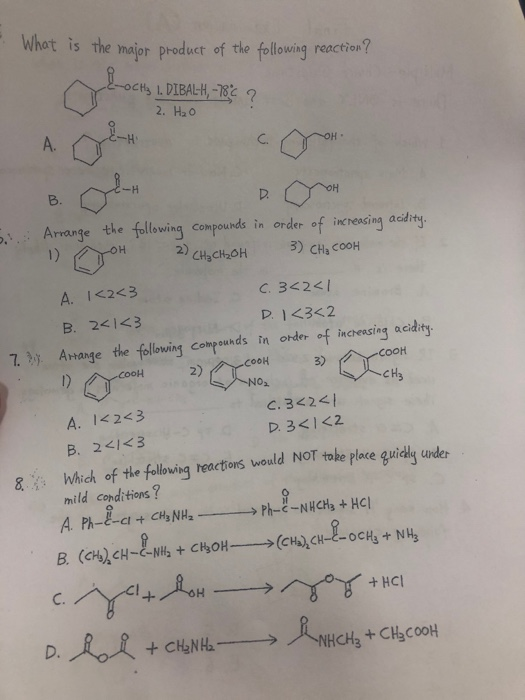 What is the major product of the following reaction?
O
OCH3 1. DIBAL-H, -78°C ?
2. H2O
A. O H C. OH
B. O H D. OH
Arrange the following compounds in order of increasing acidity.
1) OH 2) CH3CH2OH 3) CH3COOH
A. 1<2<3 C. 3<2<1
B. 2<1<3 D. 1<3<2
7. Arrange the following compounds in order of increasing acidity.
1) COOH 2) COOH NO2 3) COOH CH3
A. 1<2<3 C. 3<2<1
B. 2<1<3 D. 3<1<2
8. Which of the following reactions would NOT take place quickly under
mild conditions?
A. Ph-C-Cl + CH3NH2 → Ph-C-NHCH3 + HCl
B. (CH3)2CH-C-NH2 + CH3OH → (CH3)2CH-C-OCH3 + NH3
C. Cl + OH → O + HCl
D. O + CH3NH2 → NHCH3 + CH3COOH